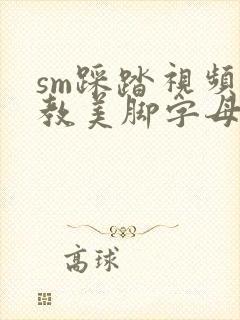 sm踩踏視頻
教美脚字母
高球